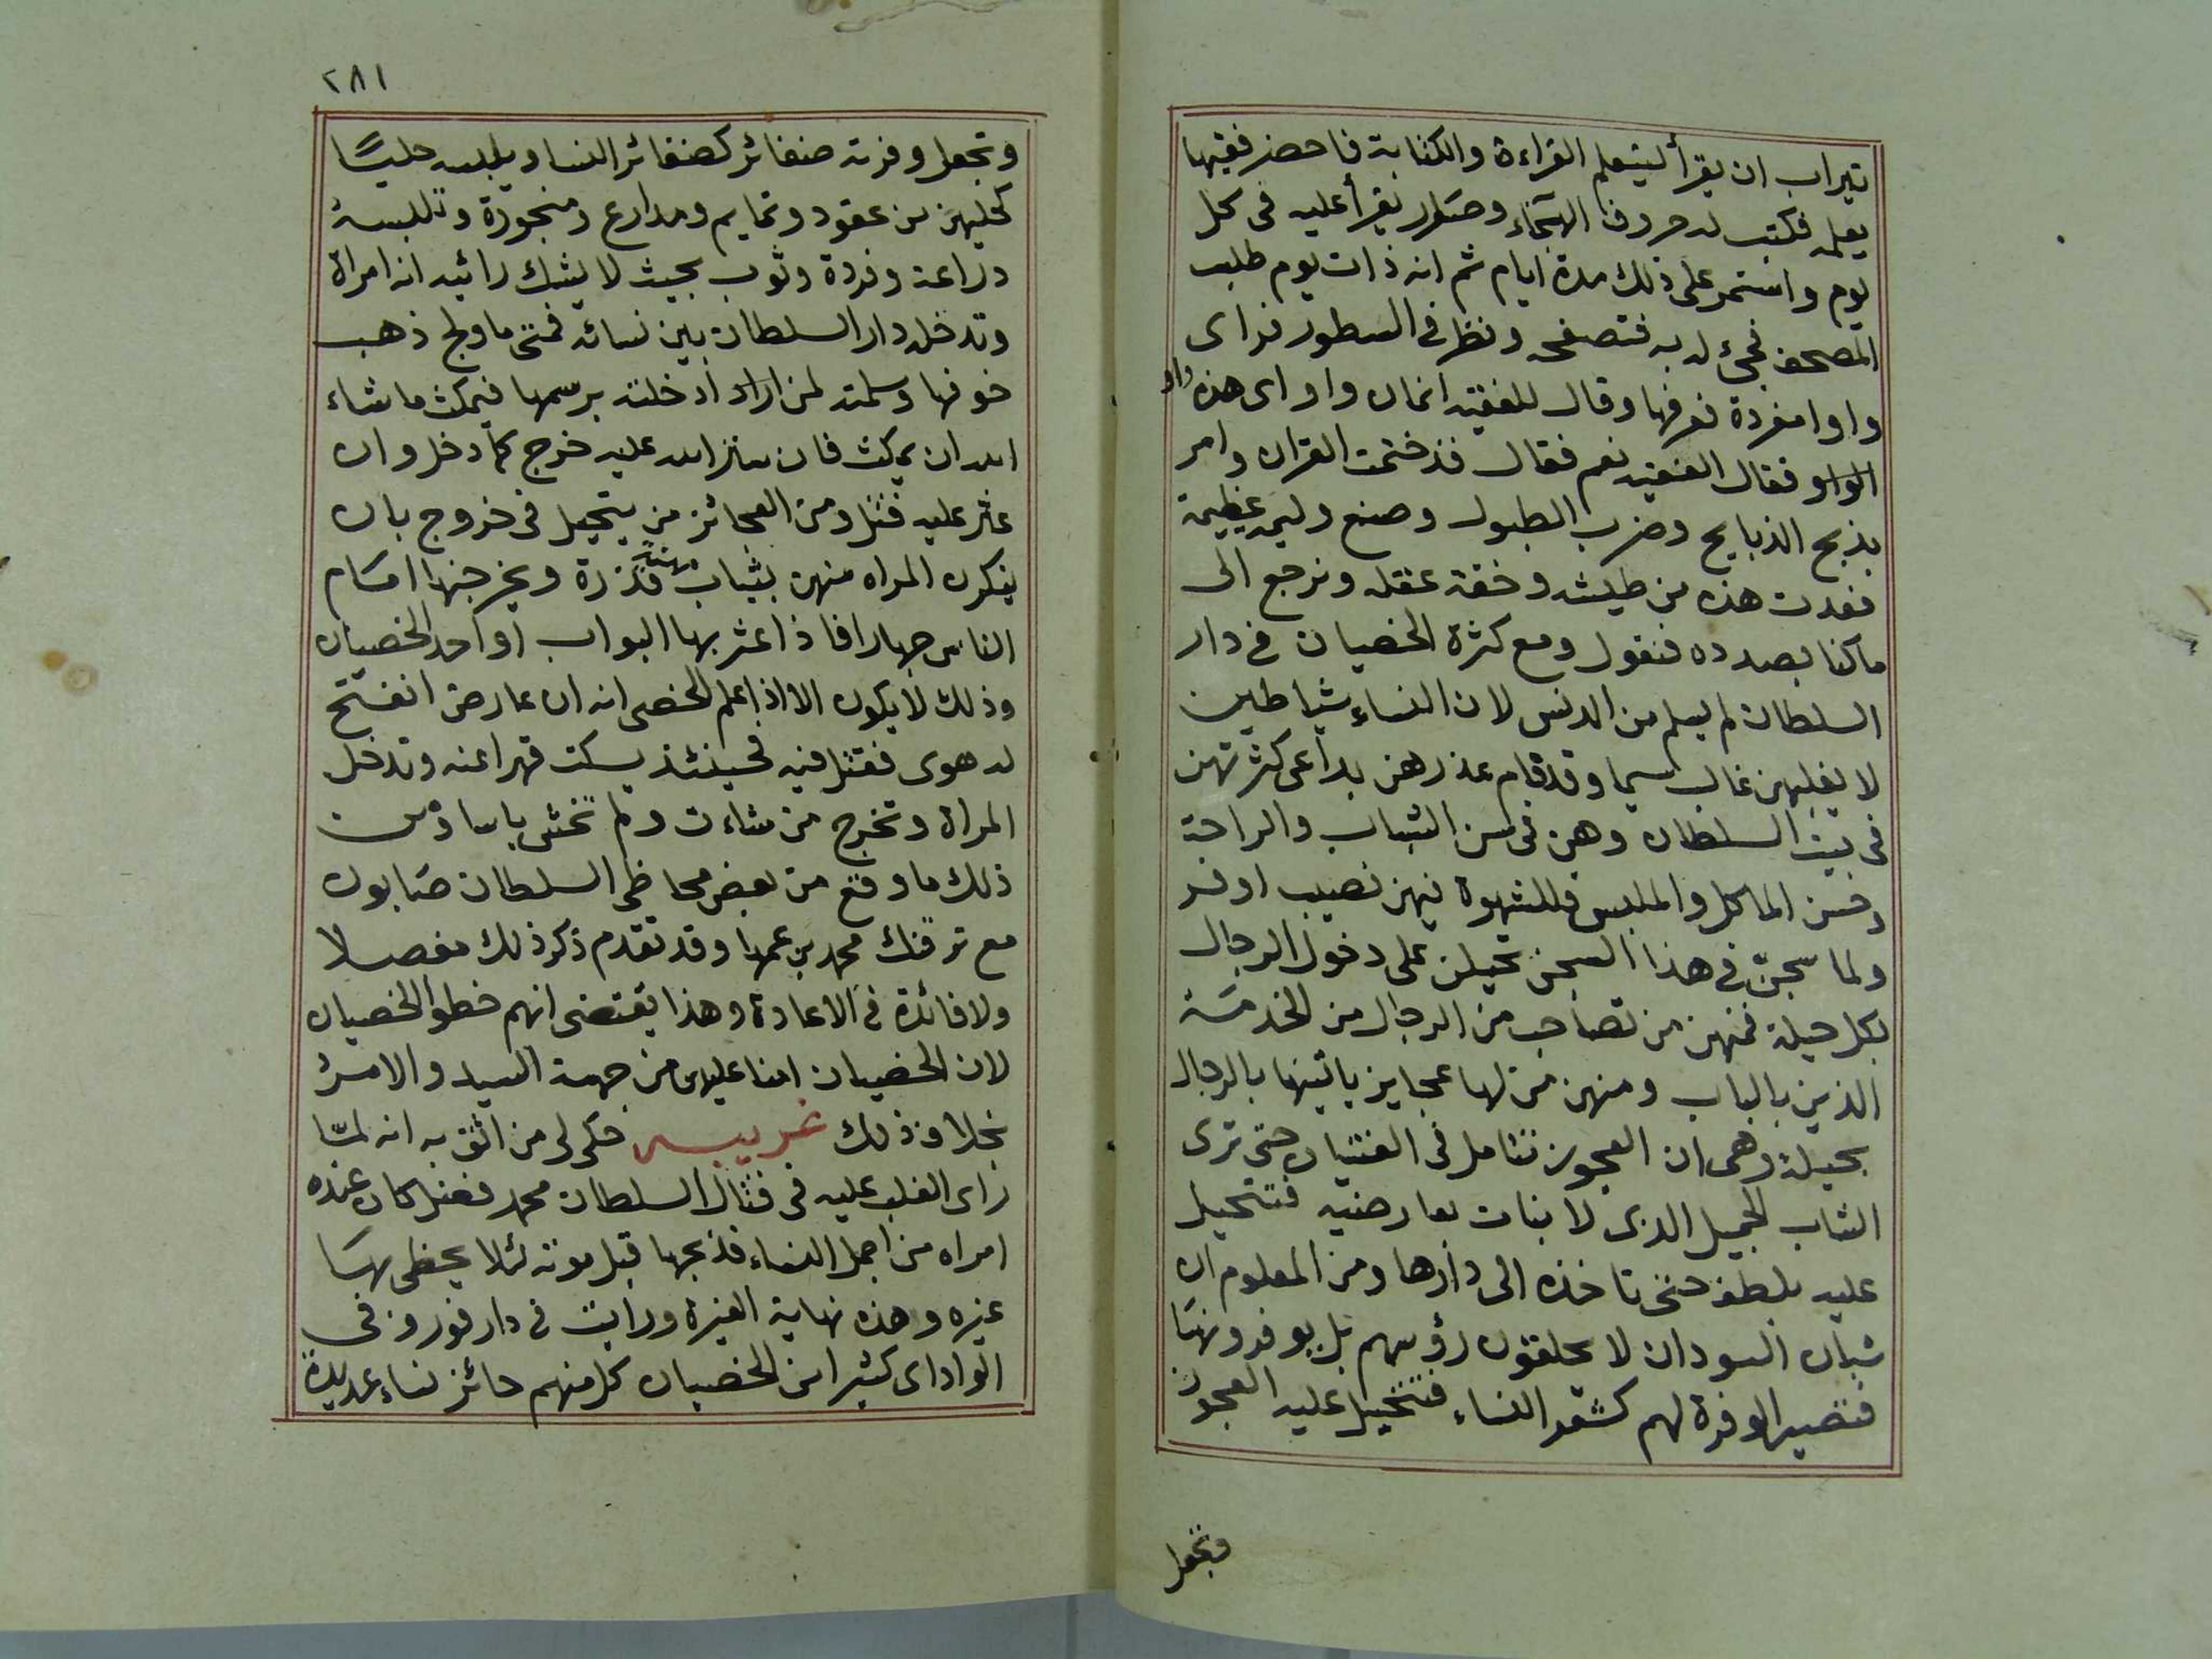 تيراب ان يقرأ ليتعلم القراءة والكتابة فاحضر فقيها
يعلمه فكتب له حروف الهجاء وصار يقرأ عليه فى كل
يوم واستمر على ذلك مدة ايام ثم انه ذات يوم طلب
المصحف فجئ له به فتصفحه ونظر فى السطور فراى
واوا مفردة فعرفها وقال للفقيه انمان واواى هذه واو
الواو فقال الفقيه نعم فقال قد ختمت القران وامر
بذبح الذبايح وضرب الطبول وصنع وليمه عظيمة
فعدت هذه من طيشه وخفة عقله ونرجع الى
ما كنا بصدده فنقول ومع كثرة الخصيان فى دار
السلطان لم يسلم من الدنس لان النساء شياطين
لا يغلبهن غالب سيما وقد قام عذرهن بداعى كثرتهن
فى بيت السلطان وهن فى سن الشباب والراحة
وحسن الماكل والملبس فللشهوة فيهن نصيب اوفر
ولما سجنّ فى هذا السجن تحيلن على دخول الرجال
بكل حيلة فمنهن من تصاحب من الرجال من الخدمة
الذين بالباب ومنهن من لها عجايز ياتينها بالرجال
بحيلة وهى ان العجوز تتامل فى الفتيان حتى ترى
الشاب الجميل الذى لا بنات بعارضيه فتتحيل
عليه بلطف حتى تاخذه الى دارها ومن المعلوم ان
شبان السودان لا يحلقون رؤسهم بل يوفرونها
فتصير الوفرة لهم كشعر النساء فتتحيل عليه العجوز
وتجعل
٢٨١
وتجعل وفرته ضفائر كضفائر النسا ويلبسه حليًا
كحليهن من عقود وتمايم ومدارع ومنجورة وتلبسه
دراعة وفردة وثوب بحيث لا يشك رائيه انه امراة
وتدخله دار السلطان بين نسائه فمتى ما ولج ذهب
خوفها وسلمته لمن اراد ادخلته برسمها فيمكث ما شاء
الله ان يمكث فان ستر الله عليه خرج كما دخل وان
عثر عليه قتل ومن العجائز من يتحيل فى خروج بان
ينكرن المراه منهن بثياب مهنة قذرة ويخرجنها امام
الناس جهارا فاذا عثر بها البواب او احد الخصيان
وذلك لا يكون الا اذا علم الخصى انه ان عارض انفتح
له هوى فقتل فيه فحينئذ يسكت قهرا عنه وتدخل
المراة وتخرج من شاءت ولم تخش باسا ومن
ذلك ما وقع من بعض محاظى السلطان صابون
مع ترقنك محمد بن عمها وقد تقدم ذكر ذلك مفصلا
ولا فائدة فى الاعادة وهذا يقتضى انهم خطوا الخصيان
لان الخصيان امنا عليهن من جهة السيد والامر
بخلاف ذلك غريبه حكى لى من اثق به انه لما
راى الغلب عليه فى قتال السلطان محمد فضل كان عنده
امراه من اجمل النساء فذبحها قبل موته لئلا يحظى بها
غيره وهذه نهاية الغيرة ورايت فى دارفور وفى
الواداى كثيرا من الخصيان كل منهم حائز نساء عديدة